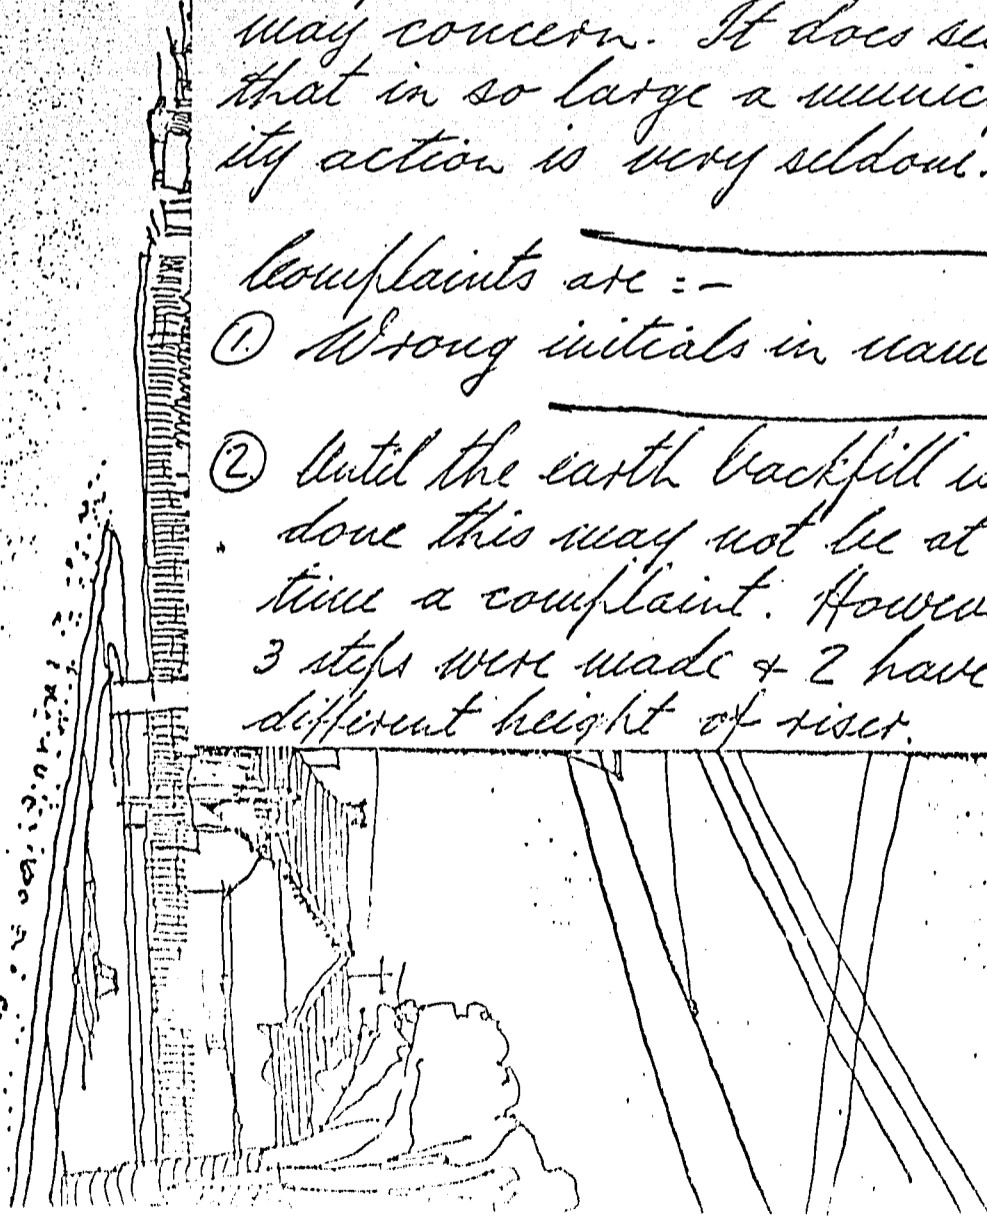 may concern. It does
that in so large a
ity action is very seldom.
Complaints are :-
① Wrong initials in
② Until the earth backfill
done this may not be at
time a complaint.
3 steps were made & 2 have
different height of riser.